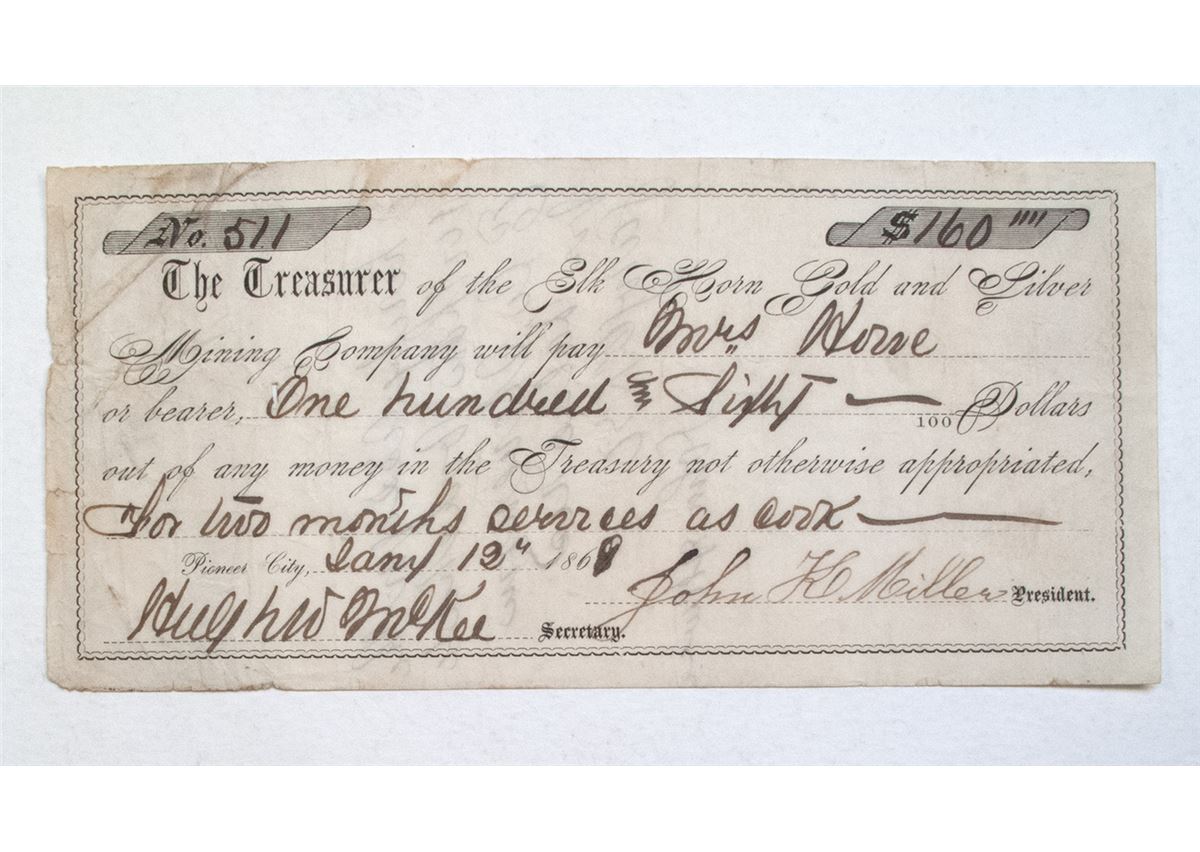 No. 511 $160 """
The Treasurer of the Elk Horn Gold and Silver
Mining Company will pay Mrs Howe
or bearer, One hundred & Sixty — 100 Dollars
out of any money in the Treasury not otherwise appropriated,
For two months services as cook —
Pioneer City, Jany 12" 1868
John K Miller President.
Hugh W McKee Secretary.